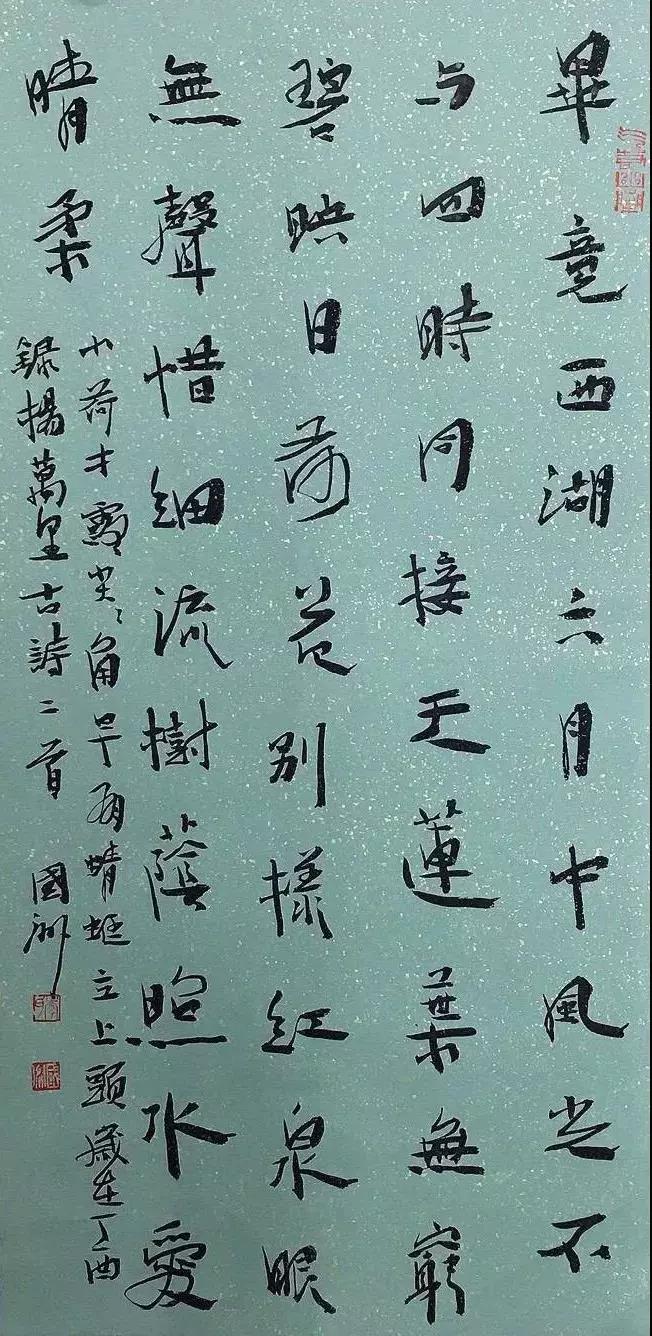 畢竟西湖六月中風光不
与四時同接天蓮葉無窮
碧映日荷花別樣紅泉眼
無聲惜細流樹蔭照水愛
晴柔
小荷才露尖〻角早有蜻蜓立上頭歲在丁酉
録揚萬里古詩二首 國